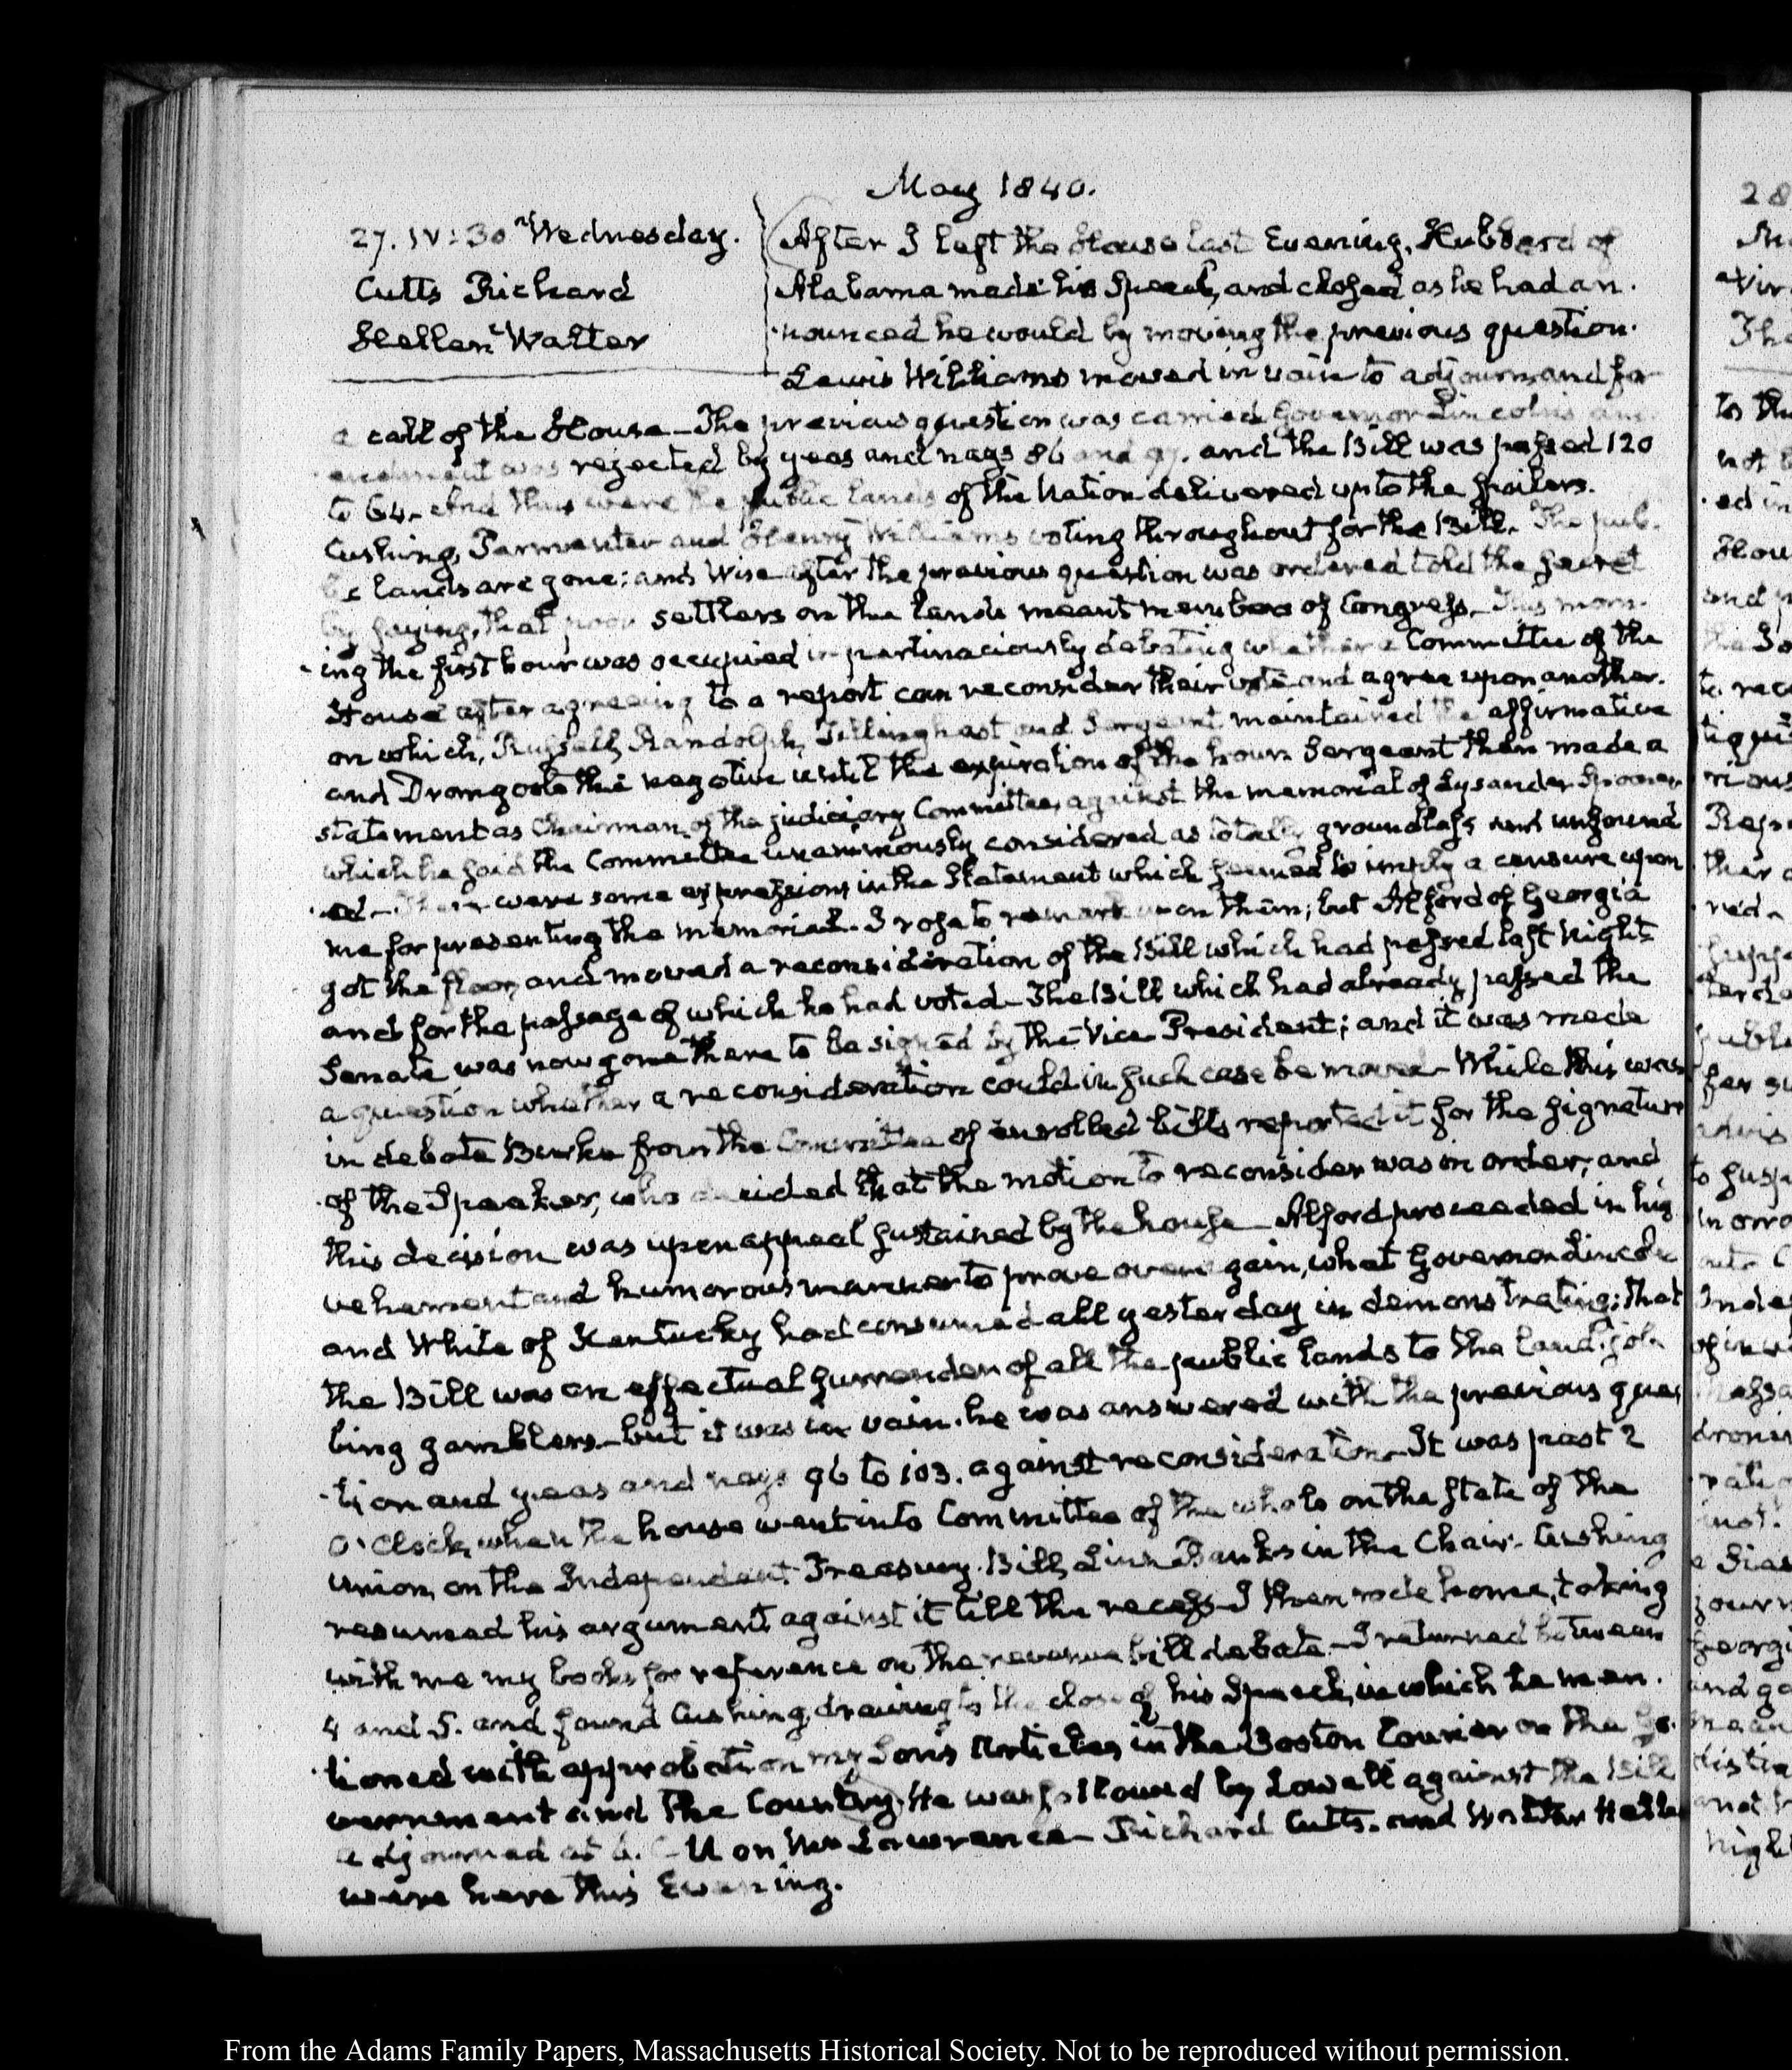 May 1840.
27. IV:30 Wednesday.
Cutts Richard
Hellen Walter
After I left the House last Evening, Hubbard of
Alabama made his Speech, and closed as he had an-
nounced he would by moving the previous question.
Lewis Williams moved in vain to adjourn, and for
a call of the House — The previous question was carried Governor Lincoln's am-
endment was rejected by yeas and nays 86 and 97. and the Bill was passed 120
to 64. And thus were the public lands of the Nation delivered up to the spoilers.
Cushing, Parmenter and Henry Williams voting throughout for the Bill. The pub-
lic lands are gone; and Wise after the previous question was ordered told the secret
by saying, that poor settlers on the lands meant members of Congress. This morn-
ing the first hour was occupied in pertinaciously debating whether a Committee of the
House after agreeing to a report can reconsider their vote and agree upon another.
on which, Russell, Randolph, Tillinghast and Sergeant maintained the affirmative
and Dromgoole the negative until the expiration of the hour. Sergeant then made a
statement as Chairman of the judiciary Committee, against the memorial of Lysander Spooner
which he said the Committee unanimously considered as totally groundless and unfound
-ed — There were some expressions in the Statement which seemed to imply a censure upon
me for presenting the memorial. I rose to remark upon them; but Alford of Georgia
got the floor, and moved a reconsideration of the Bill which had passed last Night
and for the passage of which he had voted — The Bill which had already passed the
Senate was now gone there to be signed by the Vice President; and it was made
a question whether a reconsideration could in such case be moved — While this was
in debate Burke from the Committee of enrolled bills reported it for the signature
of the Speaker, who decided that the motion to reconsider was in order, and
this decision was upon appeal sustained by the house — Alford proceeded in his
vehement and humorous manner to prove over again, what Governor Lincoln
and White of Kentucky had consumed all yesterday in demonstrating; that
the Bill was an effectual surrender of all the public lands to the land-job-
bing gamblers — but it was in vain. he was answered with the previous ques
-tion and yeas and nays 96 to 103. against reconsideration — It was past 2
O'Clock, when the house went into Committee of the whole on the State of the
Union, on the Independent Treasury Bill, Linn Banks in the Chair. Cushing
resumed his argument against it till the recess — I then rode home, taking
with me my books for reference on the revenue bill debate — I returned between
4 and 5. and found Cushing, drawing to the close of his Speech, in which he men-
-tioned with approbation my Son's Articles in the Boston Courier on the Go-
vernment and the Country. He was followed by Lowell against the Bill
adjourned at 6. Mrs Lawrence — Richard Cutts. and Walter Hellen
were here this Evening.
From the Adams Family Papers, Massachusetts Historical Society. Not to be reproduced without permission.